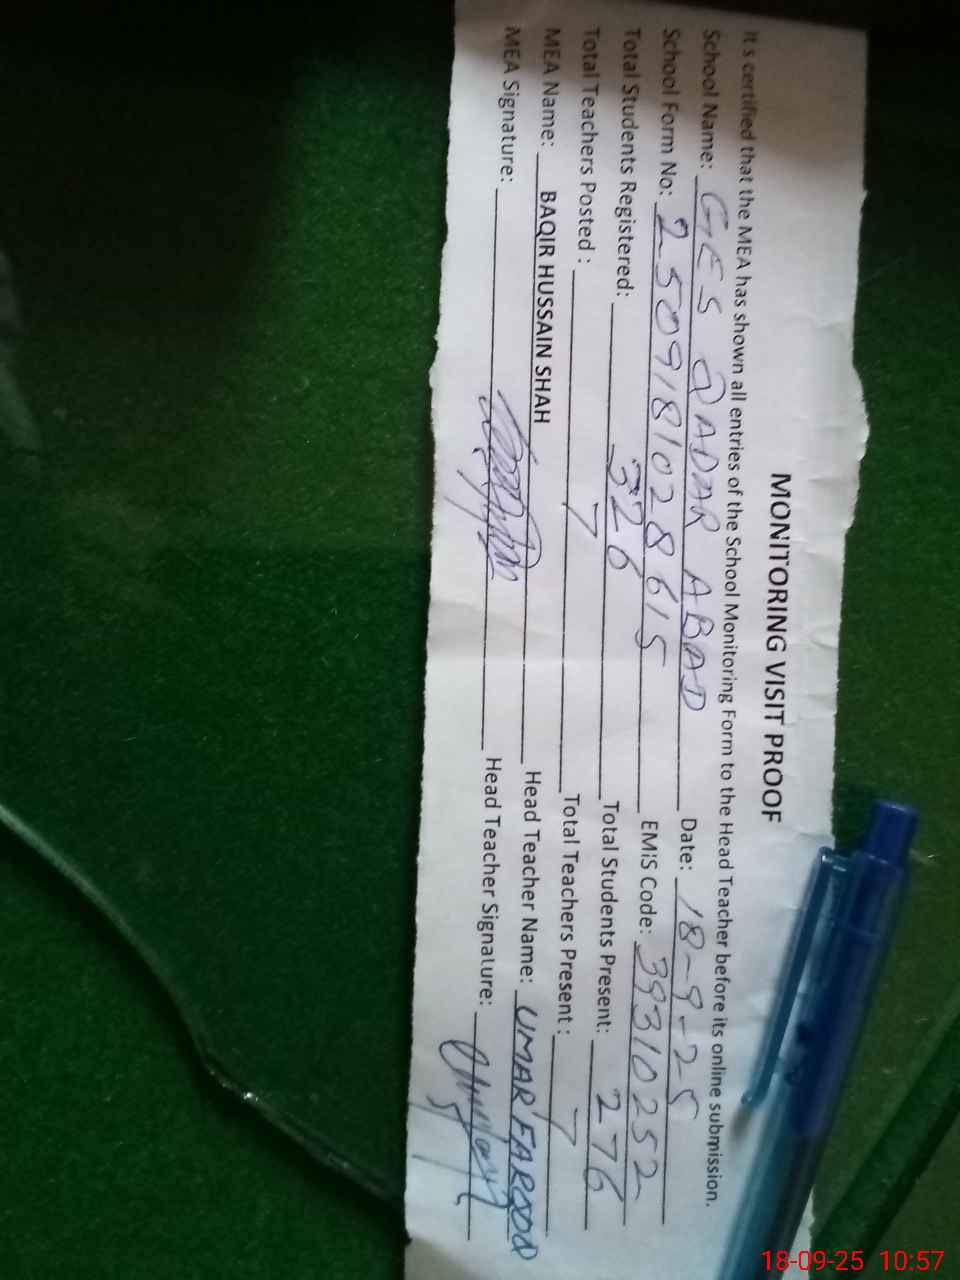 MONITORING VISIT PROOF
It s certified that the MEA has shown all entries of the School Monitoring Form to the Head Teacher before its online submission.
School Name: GES QADAR ABAD Date: 18-9-25
School Form No: 2509181028615 EMIS Code: 39310252
Total Students Registered: 326 Total Students Present: 276
Total Teachers Posted : 7 Total Teachers Present : 7
MEA Name: BAQIR HUSSAIN SHAH Head Teacher Name: UMAR FAROOQ
MEA Signature: Head Teacher Signature:
18-09-25 10:57